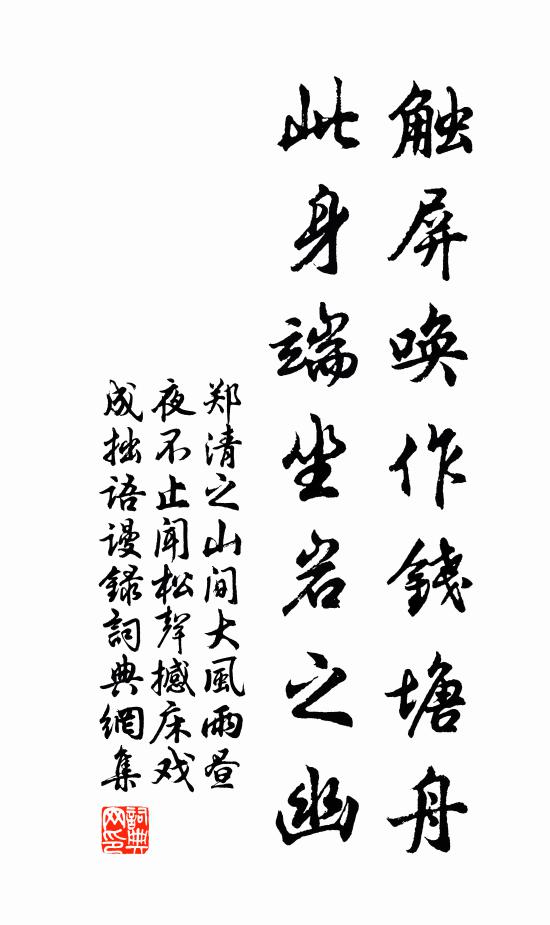 触屏唤作錢塘舟
此身端坐岩之幽
郑清之山间大風雨昼
夜不止闻松聲撼床戏
成拙语谩録詞典網集
詞典
网印